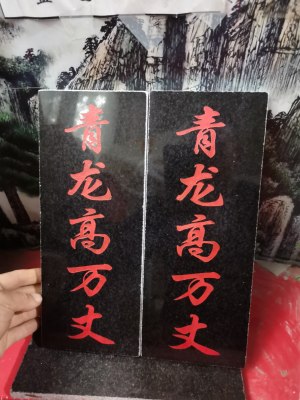 青龙高万丈
青龙高万丈